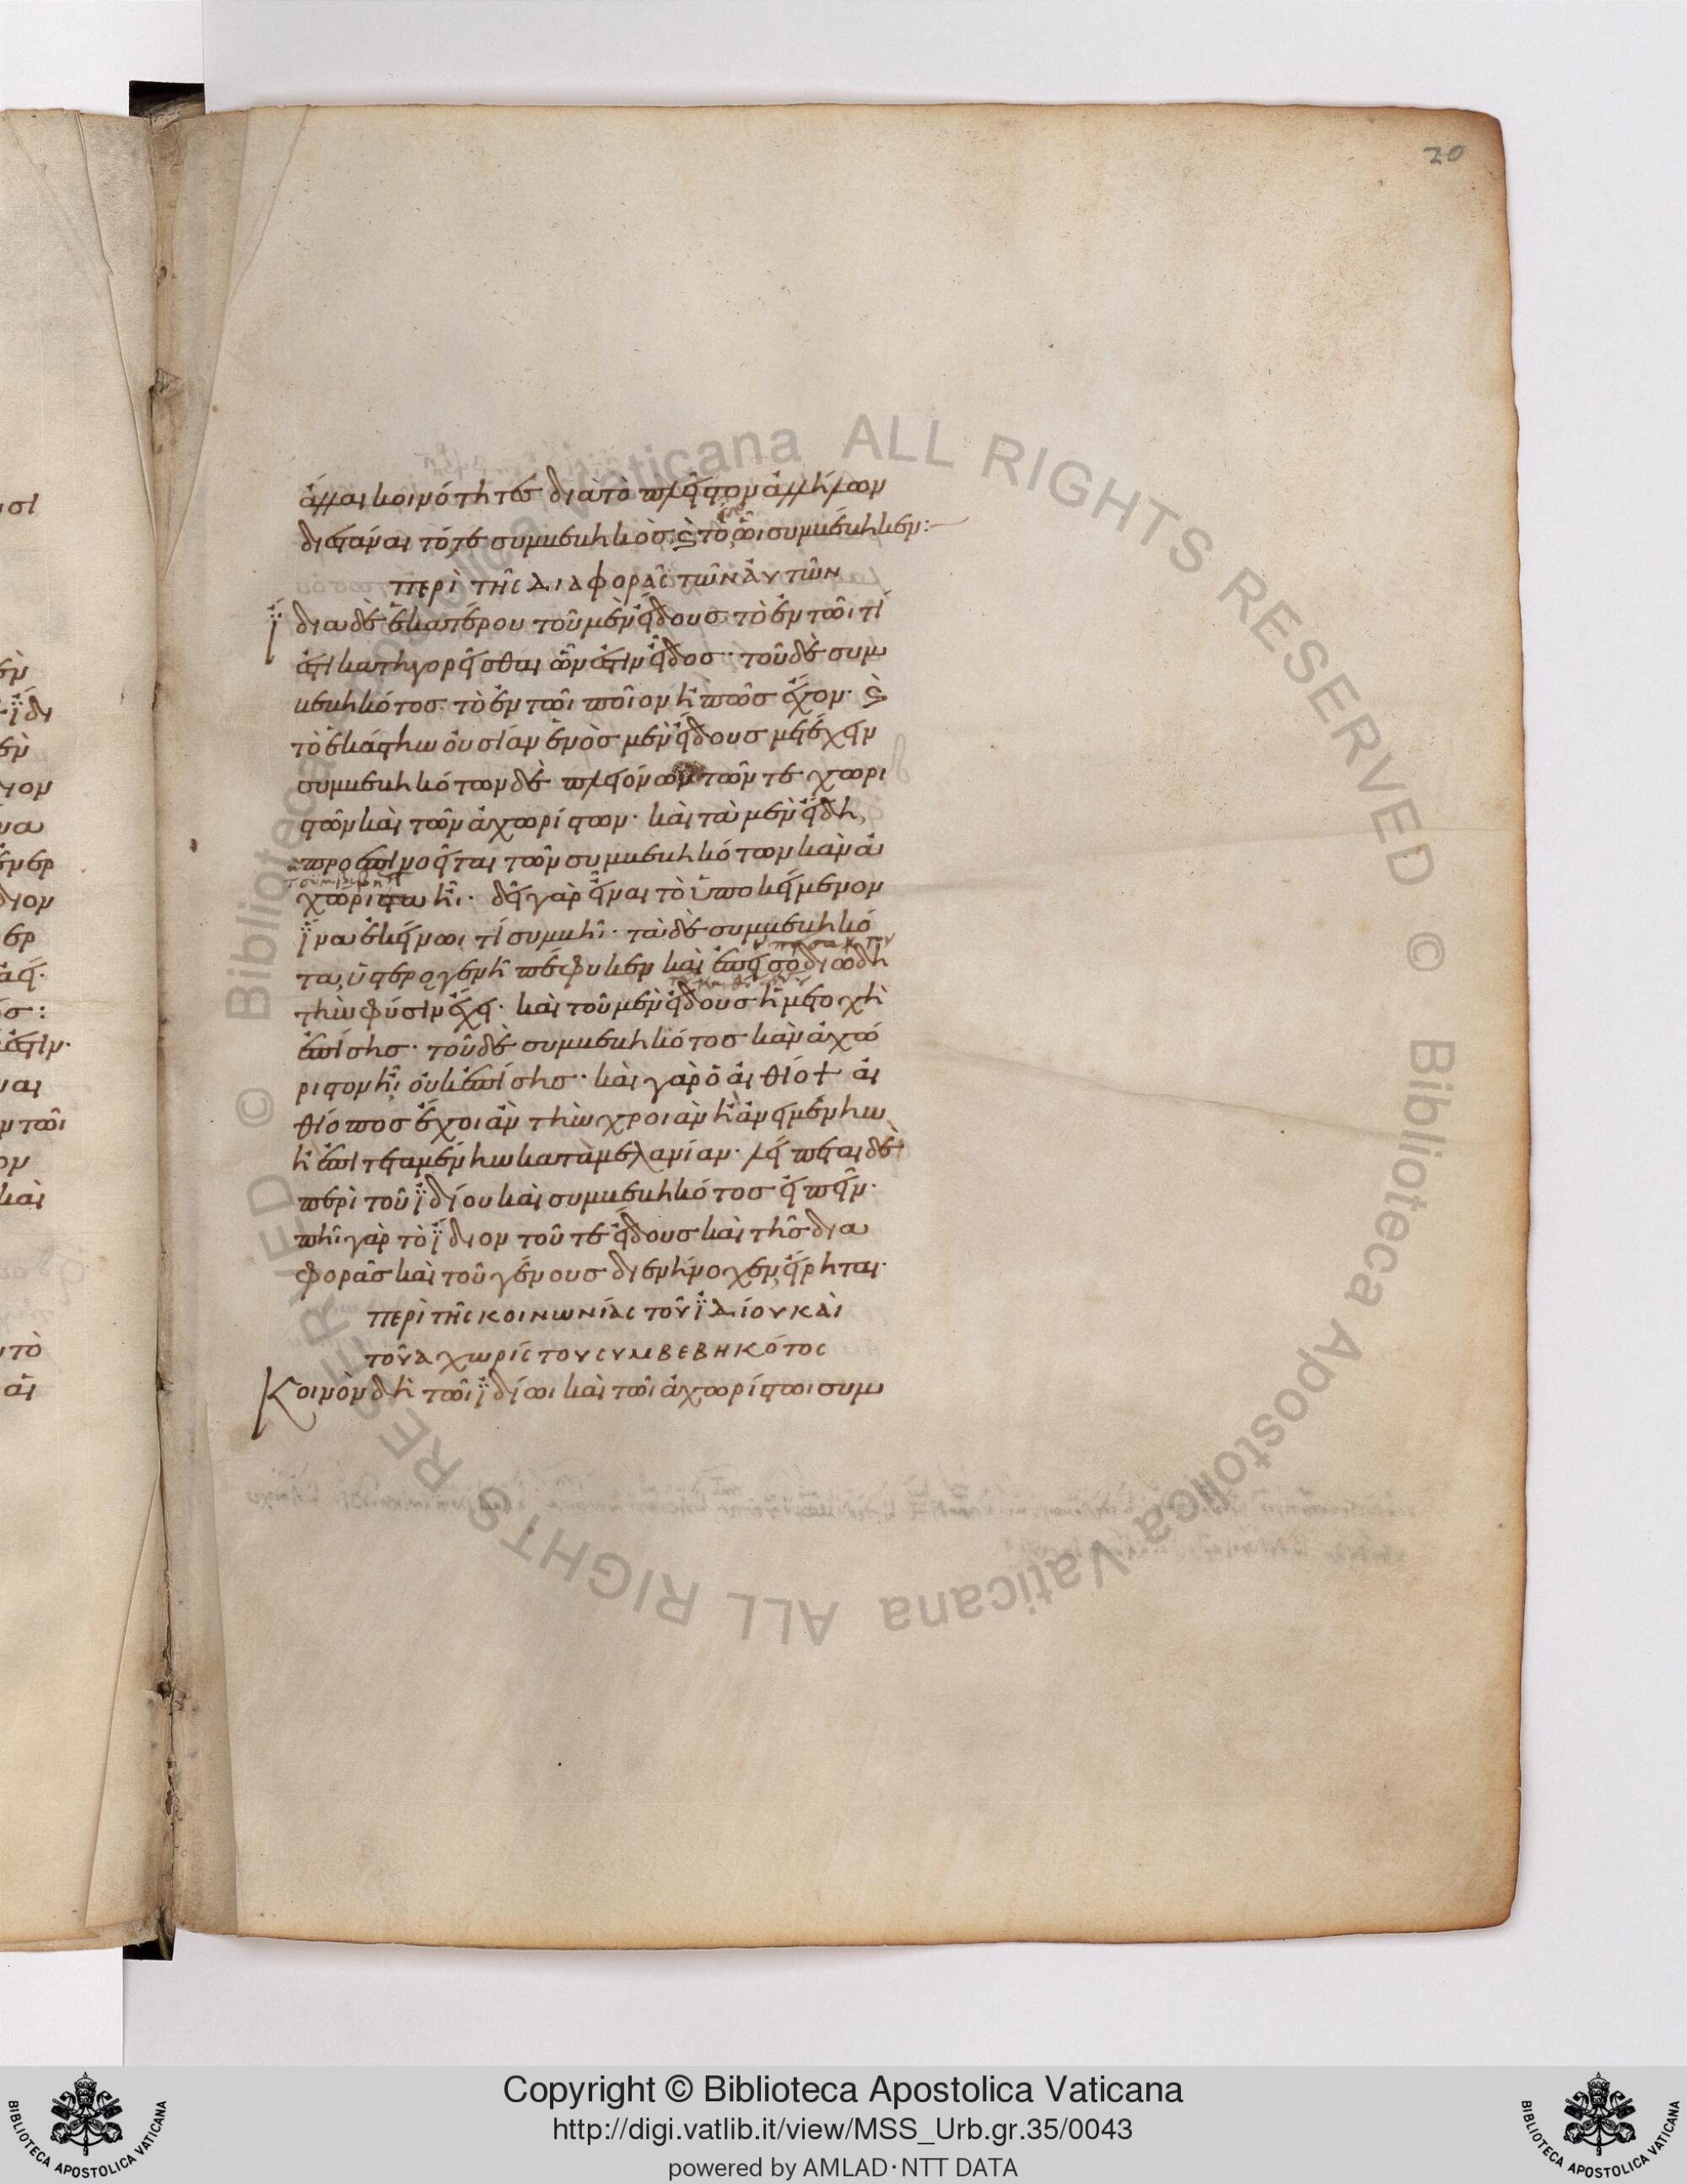 20
ἄλλαι κοινότητες διὰ τὸ πλεῖστον ἀλλήλων
διεστάναι τό, τε συμβεβηκὸς καὶ τὸ ὧι συμβέβηκεν:
περὶ τῆς διαφορᾶς τῶν αὐτῶν
ἴδια δὲ ἑκατέρου τοῦ μὲν εἴδους τὸ ἐν τῶι τί
ἐστι κατηγορεῖσθαι ὧν ἐστὶν εἶδος· τοῦ δὲ συμ
βεβηκότος τὸ ἐν τῶι ποῖον ἢ πῶς ἔχον· καὶ
τὸ ἑκάστην οὐσίαν ἑνὸς μὲν εἴδους μετέχειν
συμβεβηκότων δὲ πλειόνων τῶν τε χωρι
στῶν καὶ τῶν ἀχωρίστων· καὶ τὰ μὲν εἴδη
προεπινοεῖται τῶν συμβεβηκότων κἂν ἀ
χώριστα ἦι· δεῖ γὰρ εἶναι τὸ ὑποκείμενον
ἵνα ἐκείνωι τί συμβῆι· τὰ δὲ συμβεβηκό
τα, ὑστερογενῆ πέφυκεν καὶ ἐπεισοδιώδη
τὴν φύσιν ἔχει· καὶ τοῦ μὲν εἴδους ἡ μετοχὴ
ἐπίσης· τοῦ δὲ συμβεβηκότος κἂν ἀχώ
ριστον ἦι, οὐκ ἐπίσης· καὶ γὰρ ὁ αἰθίοψ αἰ
θίοπος ἔχοι ἂν τὴν χροιὰν ἢ ἀνειμένην
ἢ ἐπιτεταμένην κατὰ μελανίαν· λείπεται δὲ
περὶ τοῦ ἰδίου καὶ συμβεβηκότος εἰπεῖν·
πῆι γὰρ τὸ ἴδιον τοῦ τε εἴδους καὶ τῆς δια
φορᾶς καὶ τοῦ γένους διενήνοχεν, εἴρηται·
περὶ τῆς κοινωνίας τοῦ ἰδίου καὶ
τοῦ ἀχωρίστου συμβεβηκότος
Κοινὸν δὴ τῶι ἰδίωι καὶ τῶι ἀχωρίστωι συμ
Copyright © Biblioteca Apostolica Vaticana
http://digi.vatlib.it/view/MSS_Urb.gr.35/0043
powered by AMLAD·NTT DATA